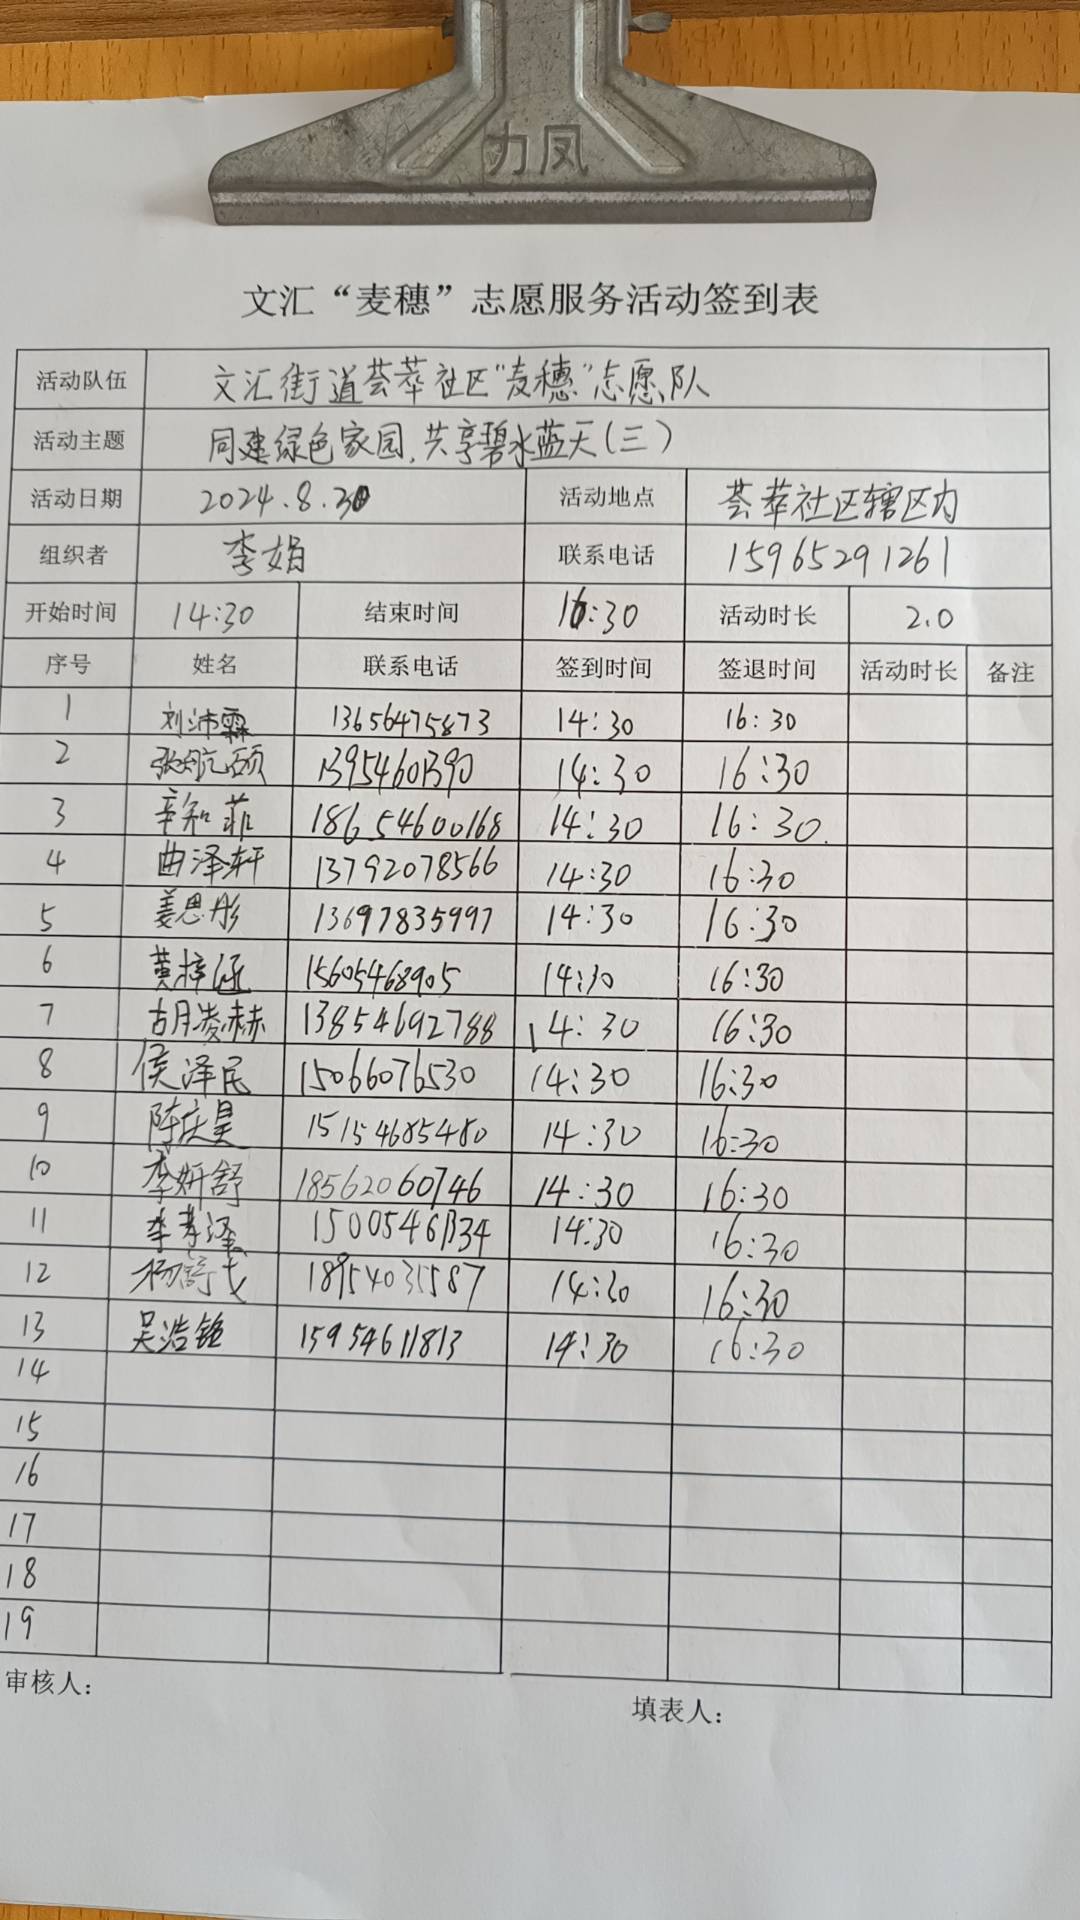 力凤
文汇“麦穗”志愿服务活动签到表
活动队伍 文汇街道荟萃社区“麦穗”志愿队
活动主题 同建绿色家园,共享碧水蓝天(三)
活动日期 2024.8.30 活动地点 荟萃社区辖区内
组织者 李娟 联系电话 15965291261
开始时间 14:30 结束时间 16:30 活动时长 2.0
序号 姓名 联系电话 签到时间 签退时间 活动时长 备注
1 刘沛霖 13656475873 14:30 16:30
2 张航硕 13954601390 14:30 16:30
3 辛知菲 18654600168 14:30 16:30
4 曲泽轩 13792078566 14:30 16:30
5 姜思彤 13697835997 14:30 16:30
6 黄梓涵 15605468905 14:30 16:30
7 胡凌赫 13854692788 14:30 16:30
8 侯泽民 15066076530 14:30 16:30
9 陈庆昊 15154685480 14:30 16:30
10 李妍舒 18562060746 14:30 16:30
11 李孝泽 15005461334 14:30 16:30
12 杨舒弋 18954035587 14:30 16:30
13 吴浩铭 15954611813 14:30 16:30
14
15
16
17
18
19
审核人:
填表人: